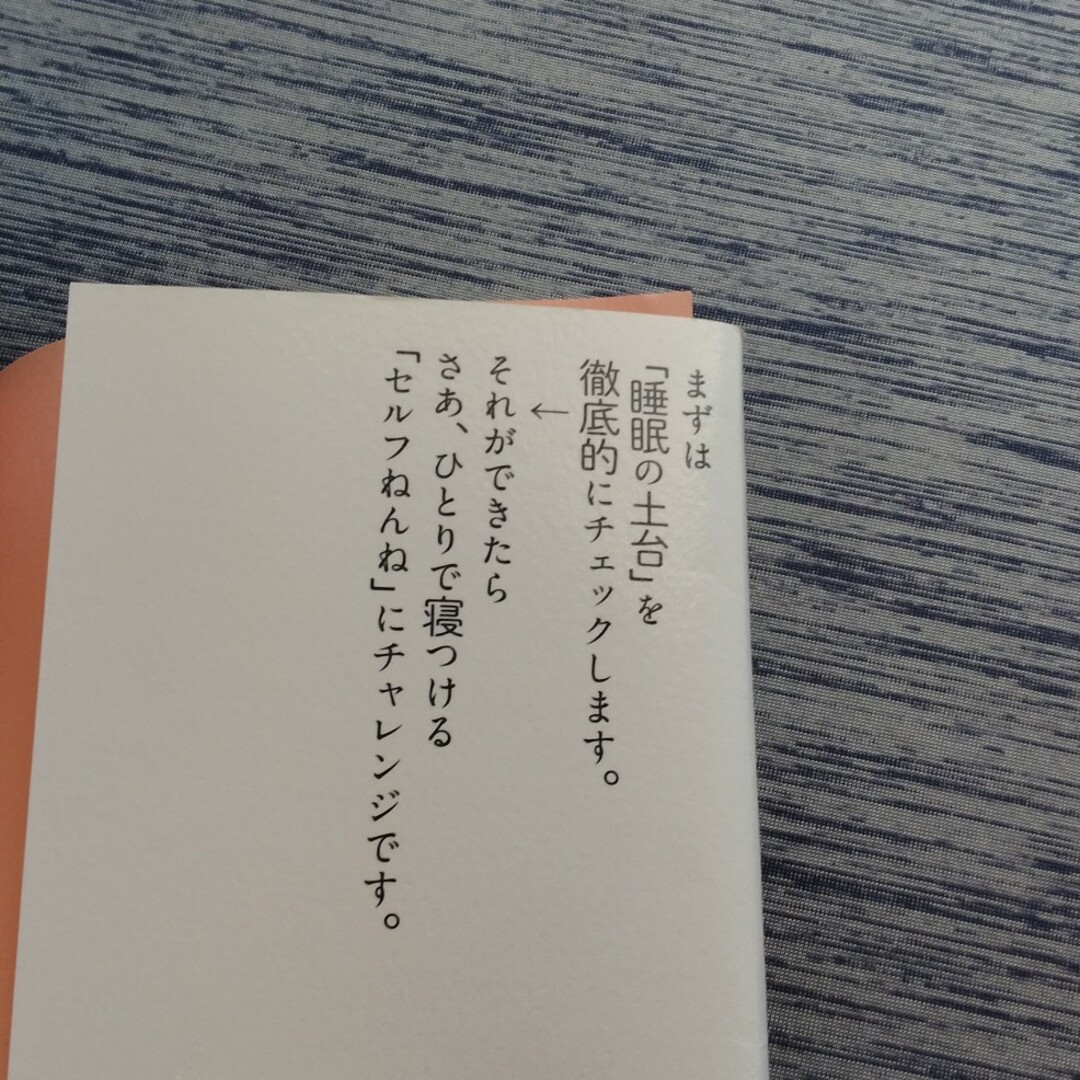 まずは
「睡眠の土台」を
徹底的にチェックします。
←
それができたら
さあ、ひとりで寝つける
「セルフねんね」にチャレンジです。